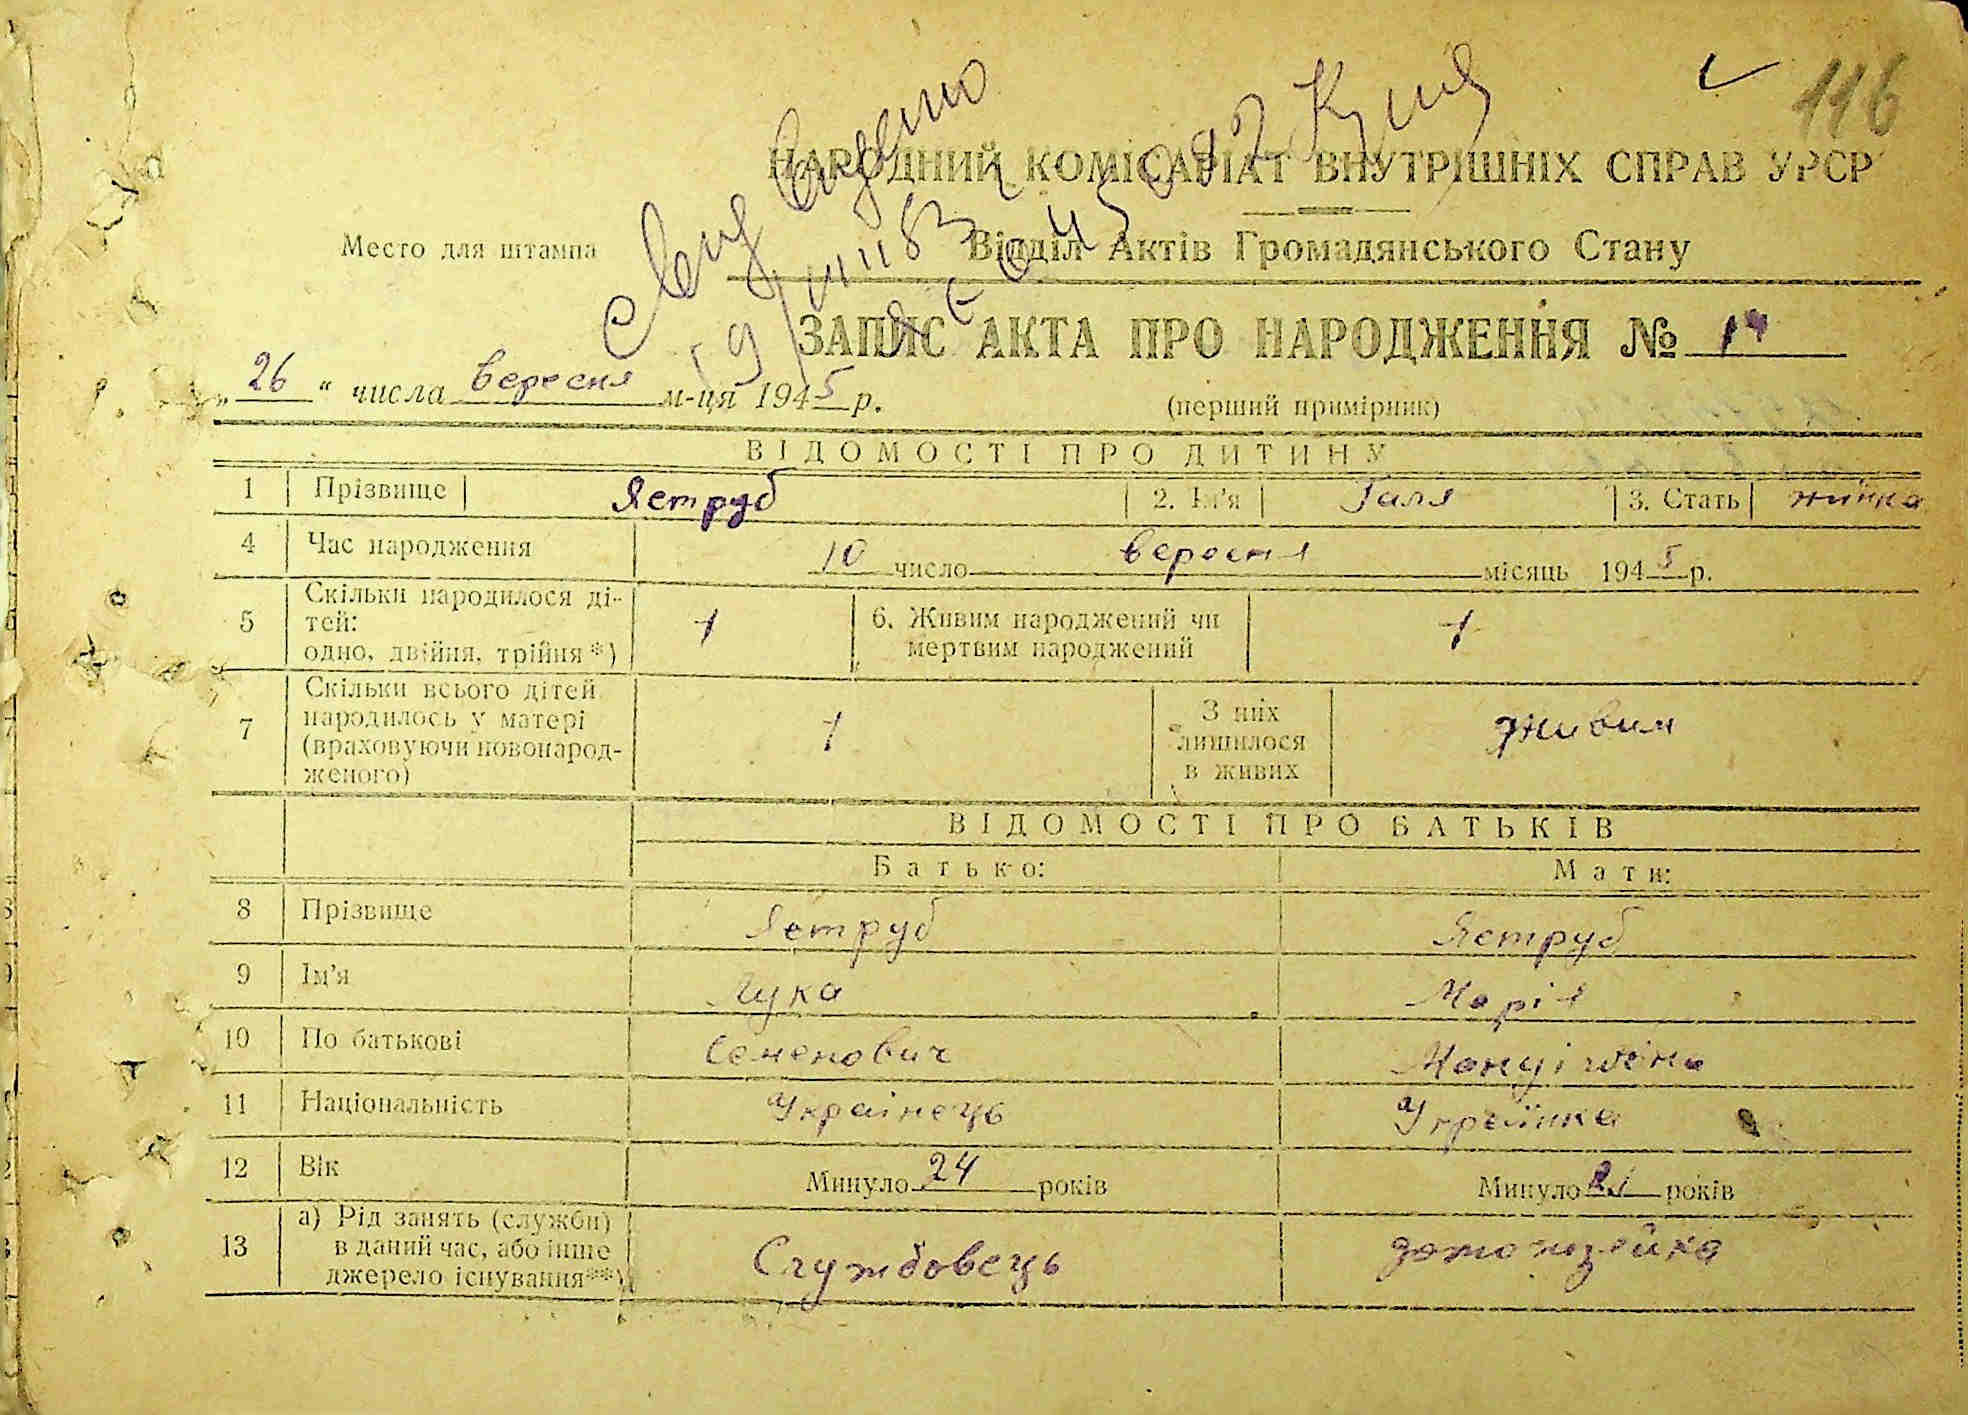 116
НАРОДНИЙ КОМІСАРІАТ ВНУТРІШНІХ СПРАВ УРСР
Место для штампа
Відділ Актів Громадянського Стану
ЗАПИС АКТА ПРО НАРОДЖЕННЯ №
„26“ числа вересня м-ця 1945 р.
(перший примірник)
ВІДОМОСТІ ПРО ДИТИНУ
1 Прізвище Яструб 2. Ім'я Галя 3. Стать жінка
4 Час народження 10 число вересня місяць 1945 р.
5 Скільки народилося ді-
тей:
одно, двійня, трійня*) 1
6. Живим народжений чи
мертвим народжений 1
7 Скільки всього дітей
народилось у матері
(враховуючи новонарод-
женого) 1
З них
лишилося
в живих живим
ВІДОМОСТІ ПРО БАТЬКІВ
Батько: Мати:
8 Прізвище Яструб Яструб
9 Ім'я Лука Марія
10 По батькові Семенович
11 Національність Українець Українка
12 Вік Минуло 24 років Минуло 21 років
13 а) Рід занять (служби)
в даний час, або інше
джерело існування**)
Службовець домохазяйка